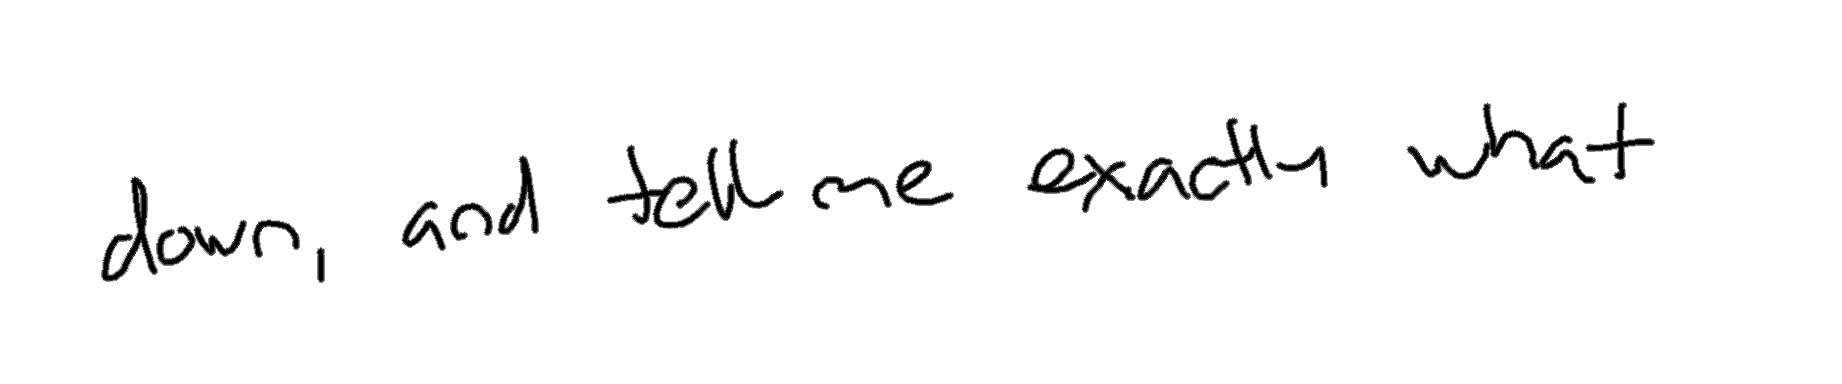 down, and tell me exactly what